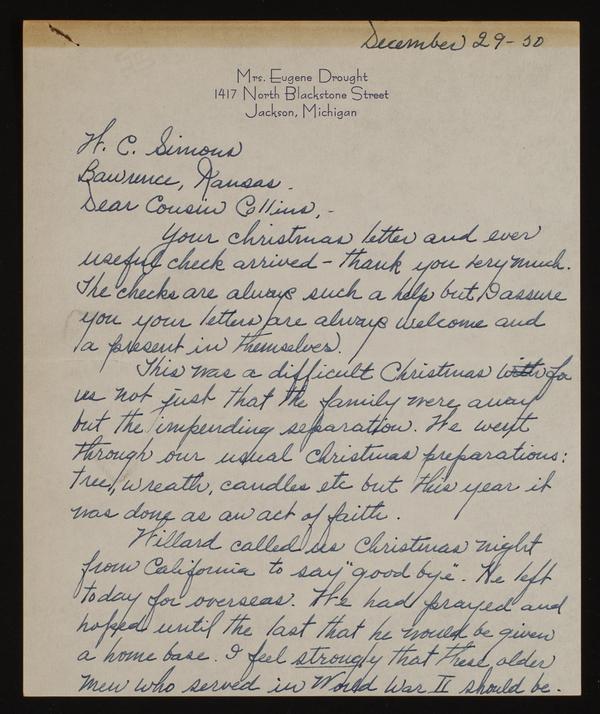 December 29-50
Mrs. Eugene Drought
1417 North Blackstone Street
Jackson, Michigan
W. C. Simons
Lawrence, Kansas.
Dear Cousin Collins,-
Your christmas letter and ever
useful check arrived - thank you very much.
The checks are always such a help but I assure
you your letters are always welcome and
a present in themselves.
This was a difficult Christmas with for
us not just that the family were away
but the impending separation. We went
through our usual Christmas preparations:
tree, wreath, candles etc but this year it
was done as an act of faith.
Willard called us Christmas night
from California to say "good bye". He left
today for overseas. We had prayed and
hoped until the last that he would be given
a home base. I feel strongly that these older
men who served in World War II should be.